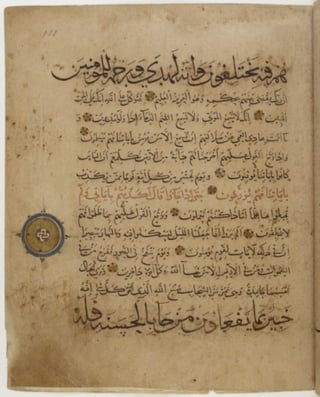 هم فيه يختلفون وانه لهدى ورحمة للمؤمنين
ان ربك يقضي بينهم بحكمه وهو العزيز العليم فتوكل على الله انك على الحق
المبين انك لا تسمع الموتى ولا تسمع الصم الدعاء اذا ولوا مدبرين و
ما انت بهادي العمي عن ضلالتهم ان تسمع الا من يؤمن باياتنا فهم مسلمون
واذا وقع القول عليهم اخرجنا لهم دابة من الارض تكلمهم ان الناس
كانوا باياتنا لا يوقنون ويوم نحشر من كل امة فوجا ممن يكذب
باياتنا فهم يوزعون حتى اذا جاؤا قال اكذبتم باياتي ولم
تحيطوا بها علما اماذا كنتم تعملون ووقع القول عليهم بما ظلموا فهم
لا ينطقون الم يروا انا جعلنا الليل ليسكنوا فيه والنهار مبصرا
ان في ذلك لايات لقوم يؤمنون ويوم ينفخ في الصور ففزع من في
السموات ومن في الارض الا من شاء الله وكل اتوه داخرين وترى الجبال
تحسبها جامدة وهي تمر مر السحاب صنع الله الذي اتقن كل شيء انه
خبير بما تفعلون من جاء بالحسنة فله